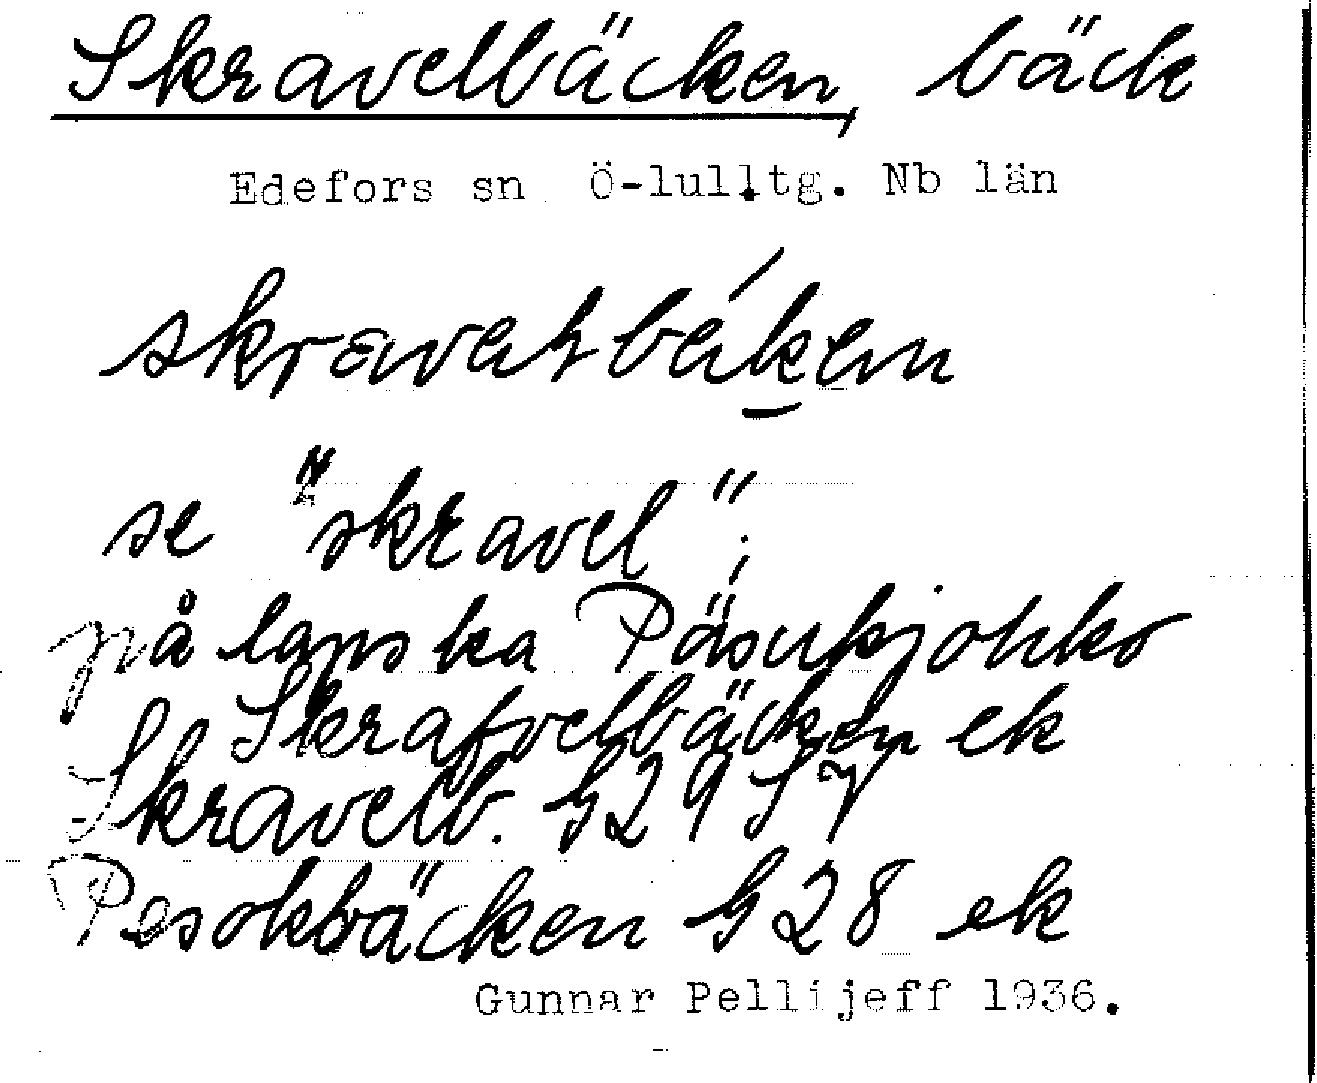 Skravelbäcken, bäck
Edefors sn Ö-lulltg. Nb län
se "skravel";
på lapska Päsukjohko
Skrafvelbäcken ek
Skravelb. G29 S7
Pesokbäcken G28 ek
Gunnar Pellijeff 1936.